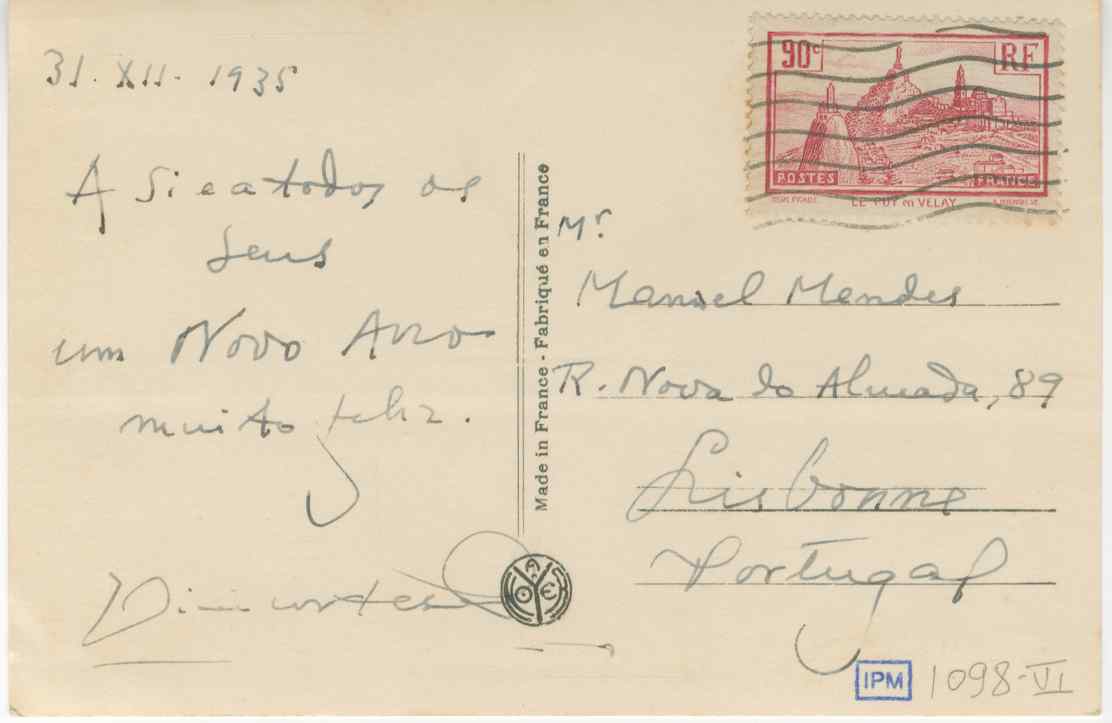 31. XII. 1935
A si e a todos os
seus
um Novo Anno
muito feliz.
Made in France - Fabriqué en France
90c
RF
POSTES
FRANCE
LE PUY en VELAY
Mr
Manuel Mendes
R. Nova do Almada, 89
Lisbonne
Portugal
IPM
1098-VI